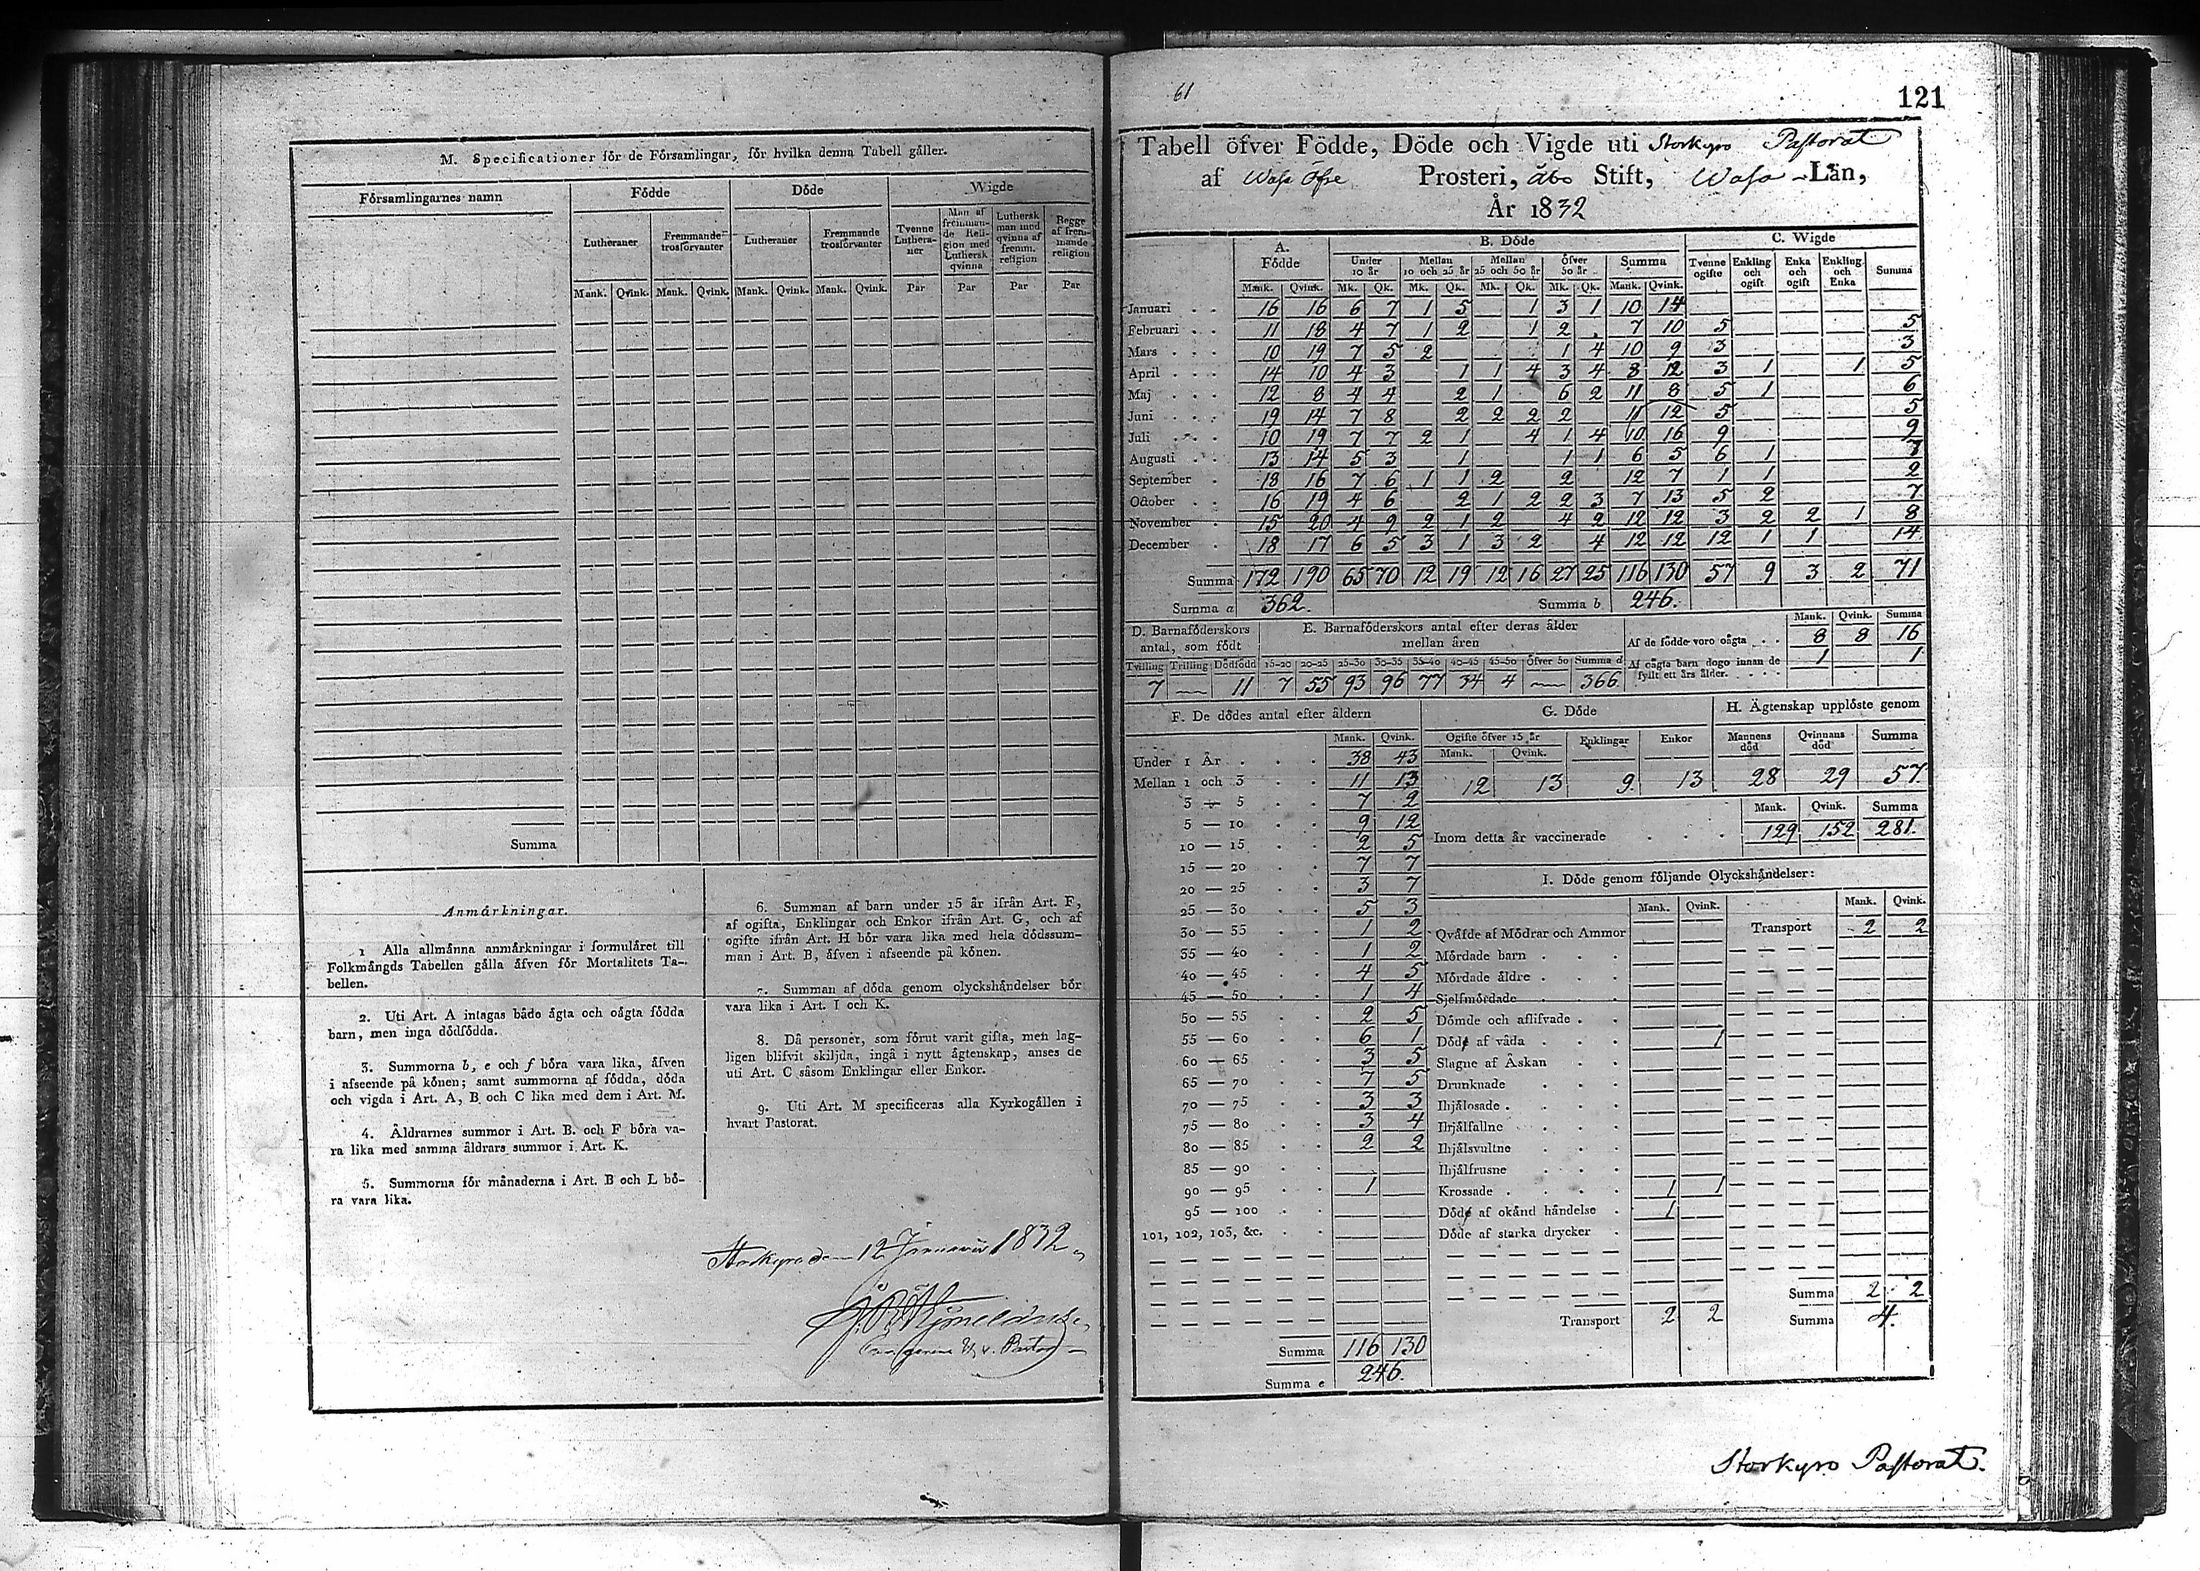 M. Specificationer för de Församlingar, för hvilka denna Tabell gäller.
Församlingarnes namn | Födde | Döde | Wigde
Lutheraner | Fremmande trosförvanter | Lutheraner | Fremmande trosförvanter | Tvenne Lutheraner | Man af fremmande Religion med Luthersk qvinna | Luthersk man med qvinna af fremm. religion | Begge af fremmande religion
Mank. Qvink. Mank. Qvink. Mank. Qvink. Mank. Qvink. Par Par Par Par
Summa
Anmärkningar.
1 Alla allmänna anmärkningar i formuläret till
Folkmängds Tabellen gälla äfven för Mortalitets Ta-
bellen.
2. Uti Art. A intagas både ägta och oägta födda
barn, men inga dödfödda.
3. Summorna b, e och f böra vara lika, äfven
i afseende på könen; samt summorna af födda, döda
och vigda i Art. A, B och C lika med dem i Art. M.
4. Åldrarnes summor i Art. B. och F böra va-
ra lika med samma åldrars summor i Art. K.
5. Summorna för månaderna i Art. B och L bö-
ra vara lika.
6. Summan af barn under 15 år ifrån Art. F,
af ogifta, Enklingar och Enkor ifrån Art. G, och af
ogifte ifrån Art. H bör vara lika med hela dödssum-
man i Art. B, äfven i afseende på könen.
7. Summan af döda genom olyckshändelser bör
vara lika i Art. I och K.
8. Då personer, som förut varit gifta, men lag-
ligen blifvit skiljda, ingå i nytt ägtenskap, anses de
uti Art. C såsom Enklingar eller Enkor.
9. Uti Art. M specificeras alla Kyrkogällen i
hvart Pastorat.
Storkyro den 12 Januarii 1832
61
121
Tabell öfver Födde, Döde och Vigde uti Storkyro Pastorat
af Wasa Öfre Prosteri, Åbo Stift, Wasa Län,
År 1832
A. Födde | B. Döde | C. Wigde
Under 10 år | Mellan 10 och 25 år | Mellan 25 och 50 år | Öfver 50 år | Summa | Tvenne ogifte | Enkling och ogift | Enka och ogift | Enkling och Enka | Summa
Mank. Qvink. Mk. Qk. Mk. Qk. Mk. Qk. Mk. Qk. Mank. Qvink.
Januari 16 16 6 7 1 5 1 3 1 10 14
Februari 11 18 4 7 1 2 1 2 7 10 5 5
Mars 10 19 7 5 2 1 4 10 9 3 3
April 14 10 4 3 1 1 4 3 4 8 12 3 1 1 5
Maj 12 8 4 4 2 1 6 2 11 8 5 1 6
Juni 19 14 7 8 2 2 2 2 11 12 5 5
Juli 10 19 7 7 2 1 4 1 4 10 16 9 9
Augusti 13 14 5 3 1 1 1 6 5 6 1 7
September 18 16 7 6 1 1 2 2 12 7 1 1 2
October 16 19 4 6 2 1 2 2 3 7 13 5 2 7
November 15 20 4 9 2 1 2 4 2 12 12 3 2 2 1 8
December 18 17 6 5 3 1 3 2 4 12 12 12 1 1 14
Summa 172 190 65 70 12 19 12 16 27 25 116 130 57 9 3 2 71
Summa a 362. Summa b 246.
D. Barnaföderskors antal, som födt
Tvilling Trilling Dödfödd
7 11
E. Barnaföderskors antal efter deras ålder mellan åren
15-20 20-25 25-30 30-35 35-40 40-45 45-50 öfver 50 Summa d
7 55 93 96 77 34 4 366
Mank. Qvink. Summa
Af de födde voro oägta 8 8 16
Af oägta barn dogo innan de fyllt ett års ålder. 1 1
F. De dödes antal efter åldern
Mank. Qvink.
Under 1 År 38 43
Mellan 1 och 3 11 13
3 — 5 7 2
5 — 10 9 12
10 — 15 2 5
15 — 20 7 7
20 — 25 3 7
25 — 30 5 3
30 — 35 1 2
35 — 40 1 2
40 — 45 4 5
45 — 50 1 4
50 — 55 2 5
55 — 60 6 1
60 — 65 3 5
65 — 70 7 5
70 — 75 3 3
75 — 80 3 4
80 — 85 2 2
85 — 90
90 — 95 1
95 — 100
101, 102, 103, &c.
Summa 116 130
Summa e 246.
G. Döde
Ogifte öfver 15 år Enklingar Enkor
Mank. Qvink.
12 13 9 13
H. Ägtenskap upplöste genom
Mannens död Qvinnans död Summa
28 29 57
Mank. Qvink. Summa
Inom detta år vaccinerade 129 152 281.
I. Döde genom följande Olyckshändelser:
Mank. Qvink. Mank. Qvink.
Qväfde af Mödrar och Ammor Transport 2 2
Mördade barn
Mördade äldre
Sjelfmördade
Dömde och aflifvade
Döde af våda 1
Slagne af Åskan
Drunknade
Ihjälosade
Ihjälfallne
Ihjälsvultne
Ihjälfrusne
Krossade 1 1
Döde af okänd händelse 1
Döde af starka drycker
Summa 2 2
Transport 2 2 Summa 4.
Storkyro Pastorat.